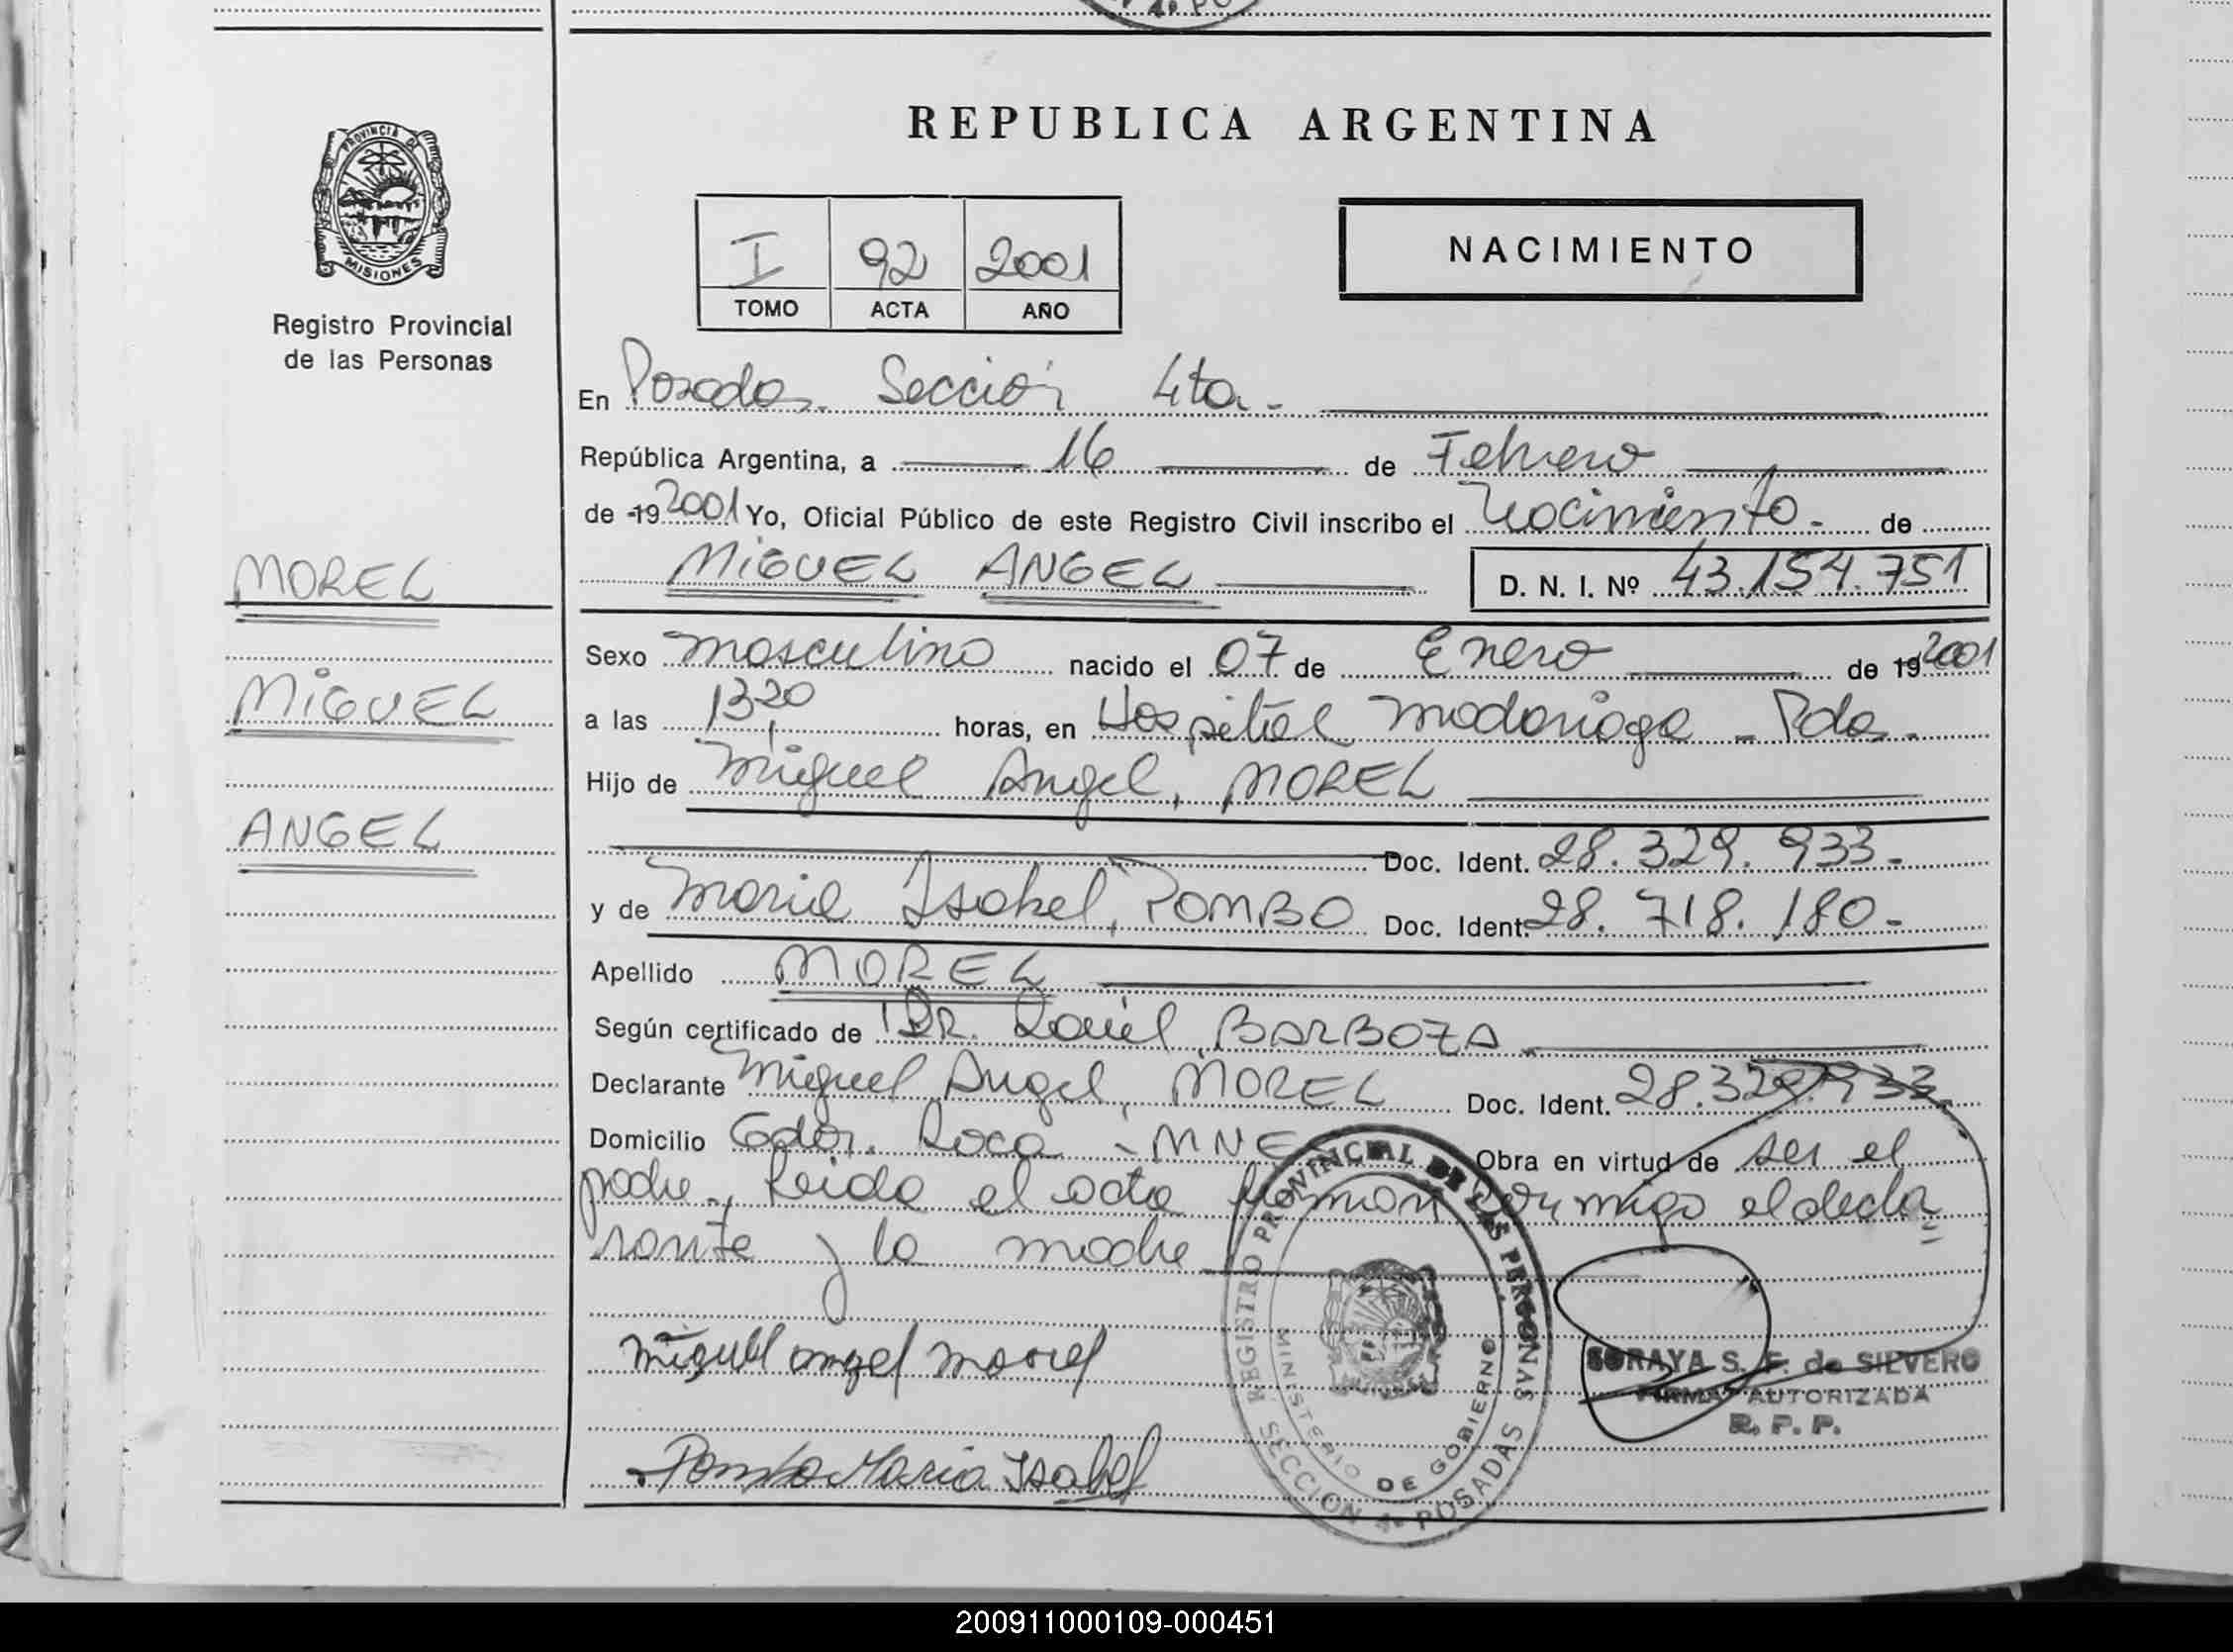 REPUBLICA ARGENTINA
PROVINCIA DE
MISIONES
Registro Provincial
de las Personas
I 92 2001
TOMO ACTA AÑO
NACIMIENTO
En Posadas Sección 4ta-
República Argentina, a 16 de Febrero
de 19 2001 Yo, Oficial Público de este Registro Civil inscribo el Nacimiento- de
MIGUEL ANGEL D. N. I. Nº 43.154.751
MOREL
MIGUEL
ANGEL
Sexo masculino nacido el 07 de Enero de 19 2001
a las 13,20 horas, en Hospital Madariaga - Pdas.
Hijo de Miguel Angel, MOREL
Doc. Ident. 28.329.933-
y de Maria Isabel, POMBO Doc. Ident. 28.718.180-
Apellido MOREL
Según certificado de Dr. BARBOZA
Declarante Miguel Angel, MOREL Doc. Ident. 28.329.933
Domicilio Gdor. Roca - MNES Obra en virtud de ser el
padre, leida el acta firman conmigo el decla
rante y la madre
miguel angel morel
Pombo Maria Isabel
REGISTRO PROVINCIAL DE LAS PERSONAS
MINISTERIO DE GOBIERNO
SECCION 4º POSADAS
SORAYA S. F. de SILVERO
FIRMA AUTORIZADA
R. P. P.
200911000109-000451